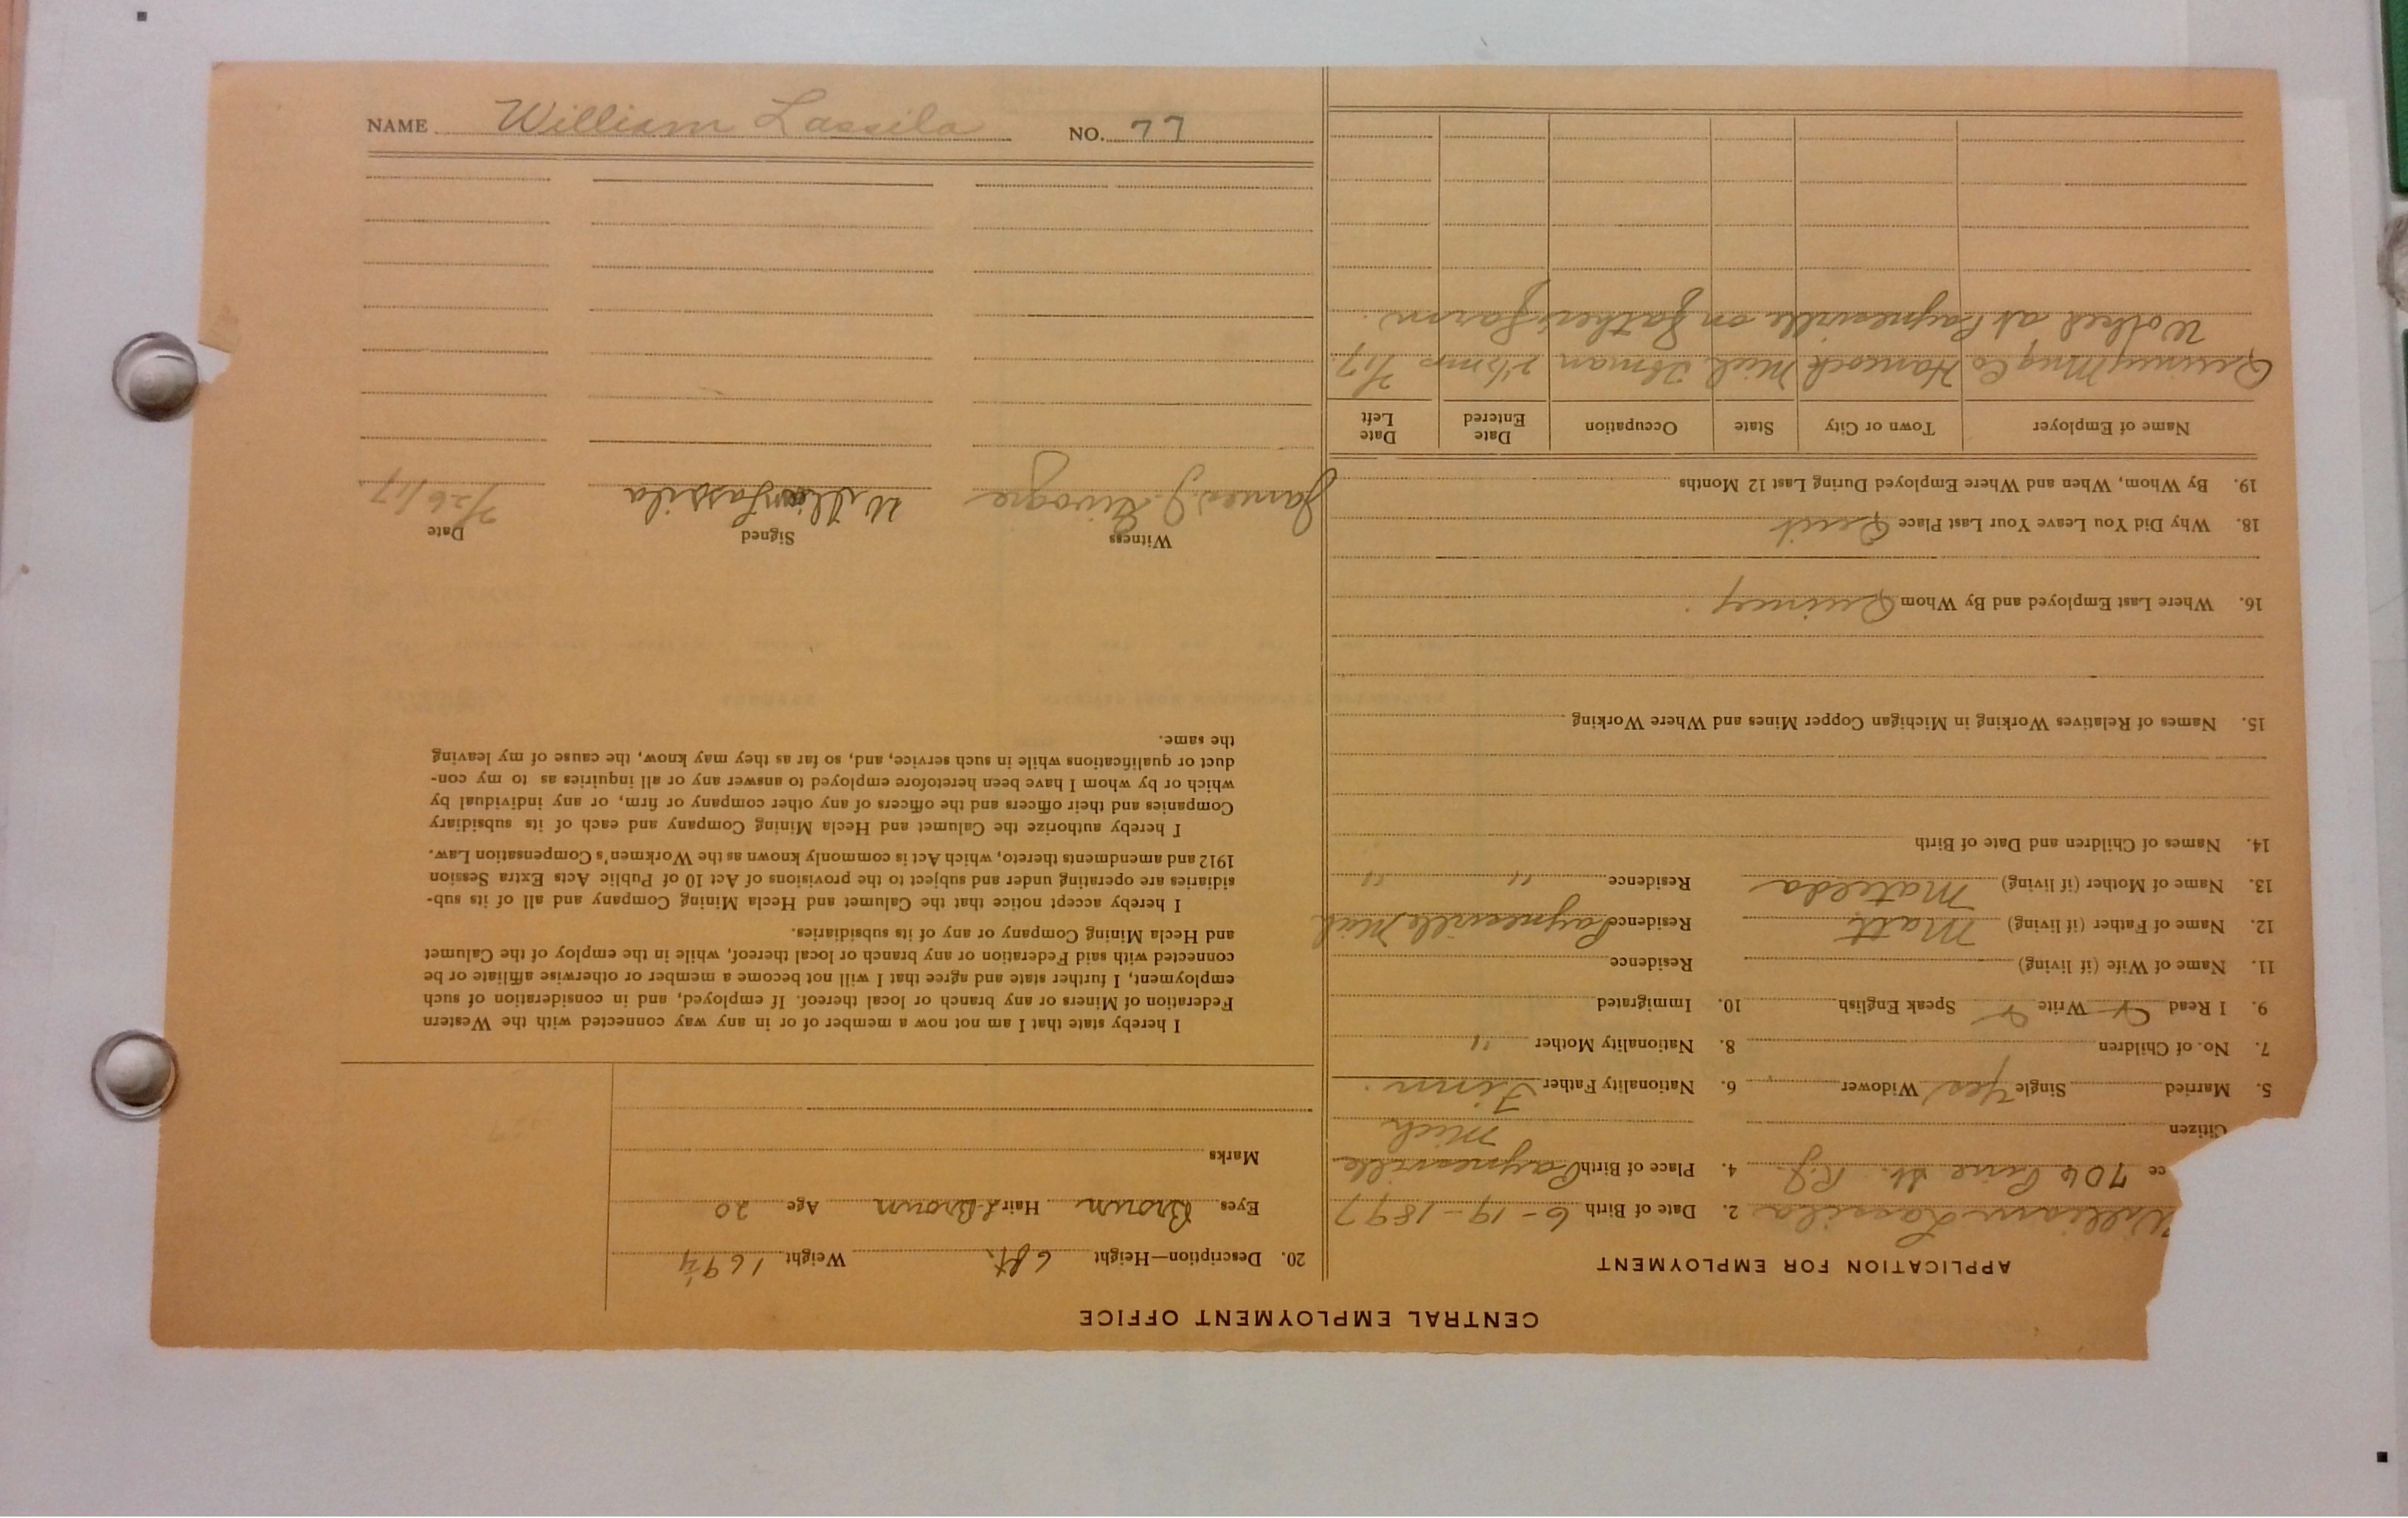 NAME William Lassila NO. 77
CENTRAL EMPLOYMENT OFFICE
APPLICATION FOR EMPLOYMENT
William Lassila 2. Date of Birth 6-19-1897
ce 706 Pine St. R.J. 4. Place of Birth Paynesville
Citizen Mich
5. Married Single Yes Widower 6. Nationality Father Finn.
7. No. of Children 8. Nationality Mother "
9. I Read Write Speak English 10. Immigrated
11. Name of Wife (if living) Residence
12. Name of Father (if living) Matt Residence Paynesville Mich
13. Name of Mother (if living) Matilda Residence " "
14. Names of Children and Date of Birth
15. Names of Relatives Working in Michigan Copper Mines and Where Working
16. Where Last Employed and By Whom Quincy.
18. Why Did You Leave Your Last Place Quit
19. By Whom, When and Where Employed During Last 12 Months
Name of Employer Town or City State Occupation Date Entered Date Left
Quincy Mng Co Hancock Mich 2 1/2 mos 7/17.
Worked at Paynesville on father's farm.
20. Description—Height 6 ft. Weight 169 1/4
Eyes Brown Hair L Brown Age 20
Marks
I hereby state that I am not now a member of or in any way connected with the Western
Federation of Miners or any branch or local thereof. If employed, and in consideration of such
employment, I further state and agree that I will not become a member or otherwise affiliate or be
connected with said Federation or any branch or local thereof, while in the employ of the Calumet
and Hecla Mining Company or any of its subsidiaries.
I hereby accept notice that the Calumet and Hecla Mining Company and all of its sub-
sidiaries are operating under and subject to the provisions of Act 10 of Public Acts Extra Session
1912 and amendments thereto, which Act is commonly known as the Workmen's Compensation Law.
I hereby authorize the Calumet and Hecla Mining Company and each of its subsidiary
Companies and their officers and the officers of any other company or firm, or any individual by
which or by whom I have been heretofore employed to answer any or all inquiries as to my con-
duct or qualifications while in such service, and, so far as they may know, the cause of my leaving
the same.
Witness Signed Date
James J. William Lassila 7/26/17.